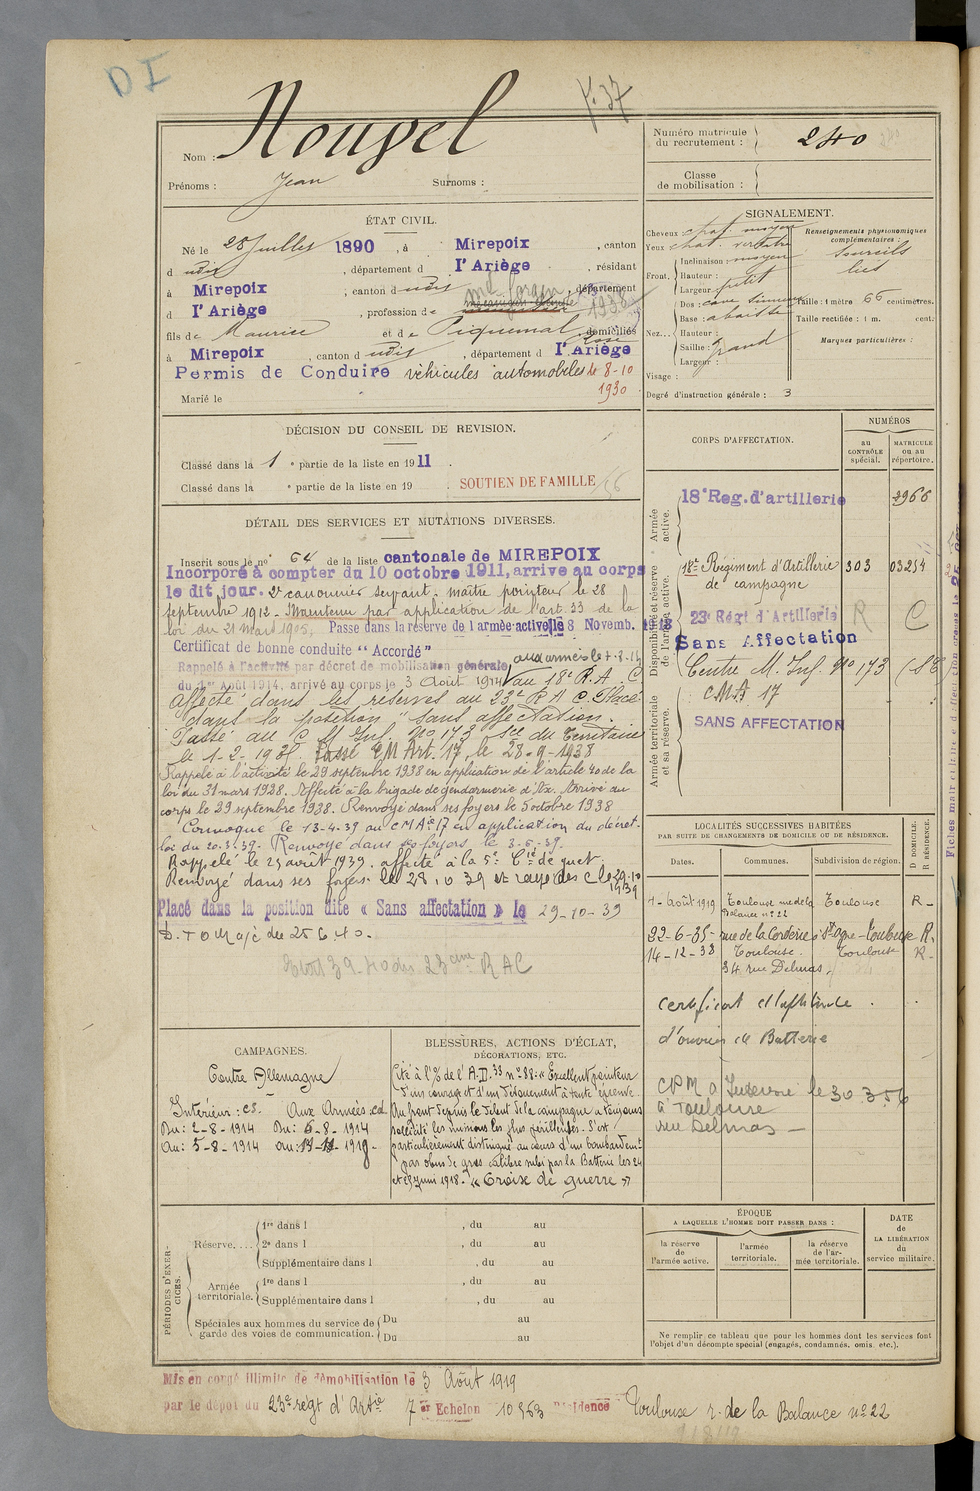 DI
Nom : Nougel
Prénoms : Jean Surnoms :
Numéro matricule du recrutement : 240
Classe de mobilisation :
ÉTAT CIVIL.
Né le 28 Juillet 1890, à Mirepoix, canton
d udit, département d l'Ariège, résidant
à Mirepoix, canton d udit, département
d l'Ariège, profession de md forain 1938
fils de Maurice et de Piquemal Rose domiciliés
à Mirepoix, canton d udit, département d l'Ariège
Permis de Conduire véhicules automobiles le 8-10
1930
Marié le
SIGNALEMENT.
Cheveux : chat. moyen
Yeux : chat. verdâtre
Front. Inclinaison : moyen
Hauteur :
Largeur : petit
Nez... Dos : cave sinueux
Base : abaissée
Hauteur :
Saillie : grand
Largeur :
Visage :
Renseignements physionomiques complémentaires :
sourcils
liés
Taille : 1 mètre 66 centimètres.
Taille rectifiée : 1 m. cent.
Marques particulières :
Degré d'instruction générale : 3
DÉCISION DU CONSEIL DE REVISION.
Classé dans la 1 e partie de la liste en 1911.
Classé dans la e partie de la liste en 19
SOUTIEN DE FAMILLE
DÉTAIL DES SERVICES ET MUTATIONS DIVERSES.
Inscrit sous le no 64 de la liste cantonale de MIREPOIX
Incorporé à compter du 10 octobre 1911, arrivé au corps
le dit jour. 2e canonnier servant. maître pointeur le 28
septembre 1912 - Maintenu par application de l'art. 33 de la
loi du 21 Mars 1905, Passé dans la réserve de l'armée active le 8 Novemb. 1913
Certificat de bonne conduite "Accordé"
Rappelé à l'activité par décret de mobilisation générale
du 1er Août 1914, arrivé au corps le 3 Août 1914 au 18e R.A.C
Affecté dans les réserves au 23e R A C. Placé
dans la position "sans affectation.
Passé au C M Inf. No 173 Son du Territoire
le 1-2-193 Passé CM Art. 17, le 28-9-1938
Rappelé à l'activité le 29 septembre 1938 en application de l'article 40 de la
loi du 31 mars 1928. Affecté à la brigade de gendarmerie d'Ax. Arrivé au
corps le 29 septembre 1938. Renvoyé dans ses foyers le 5 octobre 1938
Convoqué le 13-4-39 au CMAie 17 en application du décret-
loi du 20.3.39. Renvoyé dans ses foyers le 3-6-39.
Rappelé le 25 août 1939. affecté à la 5e Cie de guet.
Renvoyé dans ses foyers le 28.10 39 et rayé des C le 29.10
1939
Placé dans la position dite « Sans affectation » le 29-10-39
23eme RAC
CORPS D'AFFECTATION.
NUMÉROS
AU CONTRÔLE spécial.
MATRICULE OU AU répertoire.
Armée active.
18e Reg. d'artillerie 2966
Disponibilité et réserve de l'armée active.
18e Régiment d'Artillerie 303 03254
de campagne
23e Régt d'Artillerie R C
Sans Affectation
Centre M. Inf. No 173
Armée territoriale et sa réserve.
CMA 17
SANS AFFECTATION
LOCALITÉS SUCCESSIVES HABITÉES
PAR SUITE DE CHANGEMENTS DE DOMICILE OU DE RÉSIDENCE.
Dates. Communes. Subdivision de région. D DOMICILE. R RÉSIDENCE.
1-Août 1919 Toulouse rue de la Toulouse R-
Balance no 22
22-6-35- rue de la Corderie St Agne-Toulouse R.
14-12-38 Toulouse. Toulouse R-
34 rue Delmas,
Certificat d'aptitude
d'ouvrier de Batterie
le 30.3.56
à Toulouse
rue Delmas -
CAMPAGNES.
Contre Allemagne
Intérieur : CS. Aux Armées : cd
Du : 2-8-1914 Du : 6-8-1914
Au : 5-8-1914 Au : 1919-
BLESSURES, ACTIONS D'ÉCLAT,
DÉCORATIONS, ETC.
Cité à l'O/ de l'A.D. 33 no 88 : "Excellent pointeur
d'un courage et d'un dévouement à toute épreuve.
Au front depuis le début de la campagne a toujours
sollicité les missions les plus périlleuses. S'est
particulièrement distingué au cours d'un bombardement
par obus de gros calibre subi par la Batterie les 24
et 25 juin 1918. "Croix de guerre"
PÉRIODES D'EXERCICES.
Réserve.... 1re dans l , du au
2e dans l , du au
Supplémentaire dans l , du au
Armée territoriale. 1re dans l , du au
Supplémentaire dans l , du au
Spéciales aux hommes du service de garde des voies de communication. Du au
Du au
ÉPOQUE
A LAQUELLE L'HOMME DOIT PASSER DANS :
la réserve de l'armée active.
l'armée territoriale.
la réserve de l'armée territoriale.
DATE de LA LIBÉRATION du service militaire.
Ne remplir ce tableau que pour les hommes dont les services font
l'objet d'un décompte spécial (engagés, condamnés, omis, etc.).
Mis en congé illimité de démobilisation le 3 Août 1919
par le dépôt du 23e régt d'Artie 7e Echelon 10363 Résidence Toulouse r. de la Balance no 22